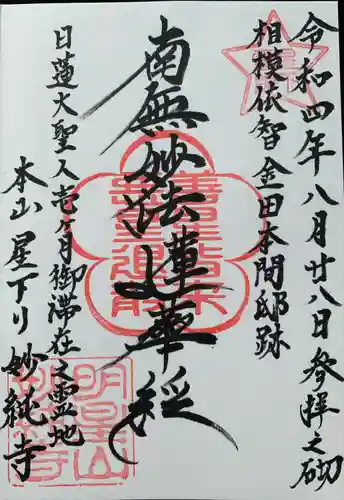 令和四年八月廿八日参拝之砌
相模依智金田本間邸跡
南無妙法蓮華経
日蓮大聖人壱ヶ月御滞在之霊地
本山星下り妙純寺
明星山
妙純寺